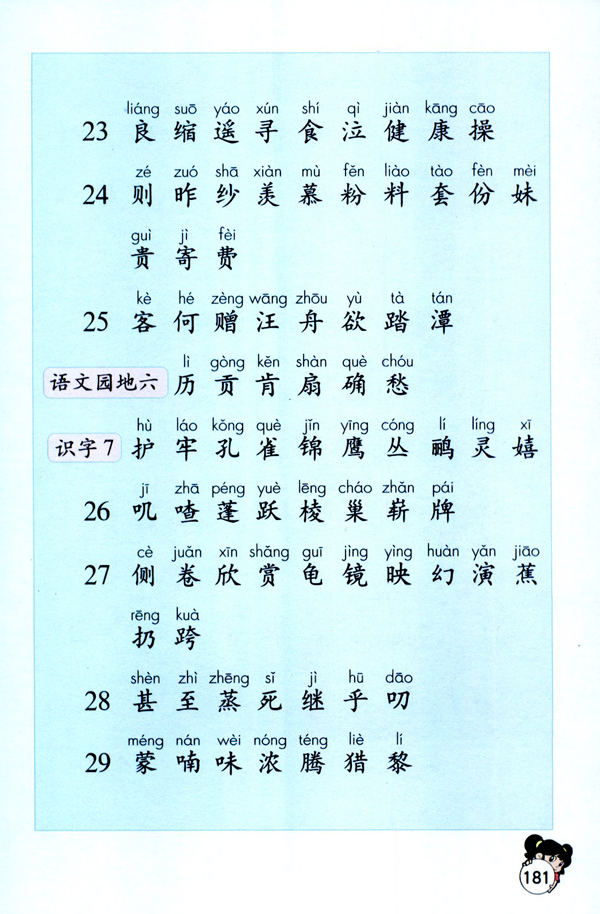 liáng suō yáo xún shí qì jiàn kāng cāo
23 良 缩 遥 寻 食 泣 健 康 操
zé zuó shā xiàn mù fěn liào tào fèn mèi
24 则 昨 纱 羡 慕 粉 料 套 份 妹
guì jì fèi
贵 寄 费
kè hé zèng wāng zhōu yù tà tán
25 客 何 赠 汪 舟 欲 踏 潭
lì gòng kěn shàn què chóu
语文园地六 历 贡 肯 扇 确 愁
hù láo kǒng què jǐn yīng cóng lí líng xī
识字 7 护 牢 孔 雀 锦 鹰 丛 鹂 灵 嬉
jī zhā péng yuè lēng cháo zhǎn pái
26 叽 喳 蓬 跃 棱 巢 崭 牌
cè juǎn xīn shǎng guī jìng yìng huàn yǎn jiāo
27 侧 卷 欣 赏 龟 镜 映 幻 演 蕉
rēng kuà
扔 跨
shèn zhì zhēng sǐ jì hū dāo
28 甚 至 蒸 死 继 乎 叨
méng nán wèi nóng téng liè lí
29 蒙 喃 味 浓 腾 猎 黎
181